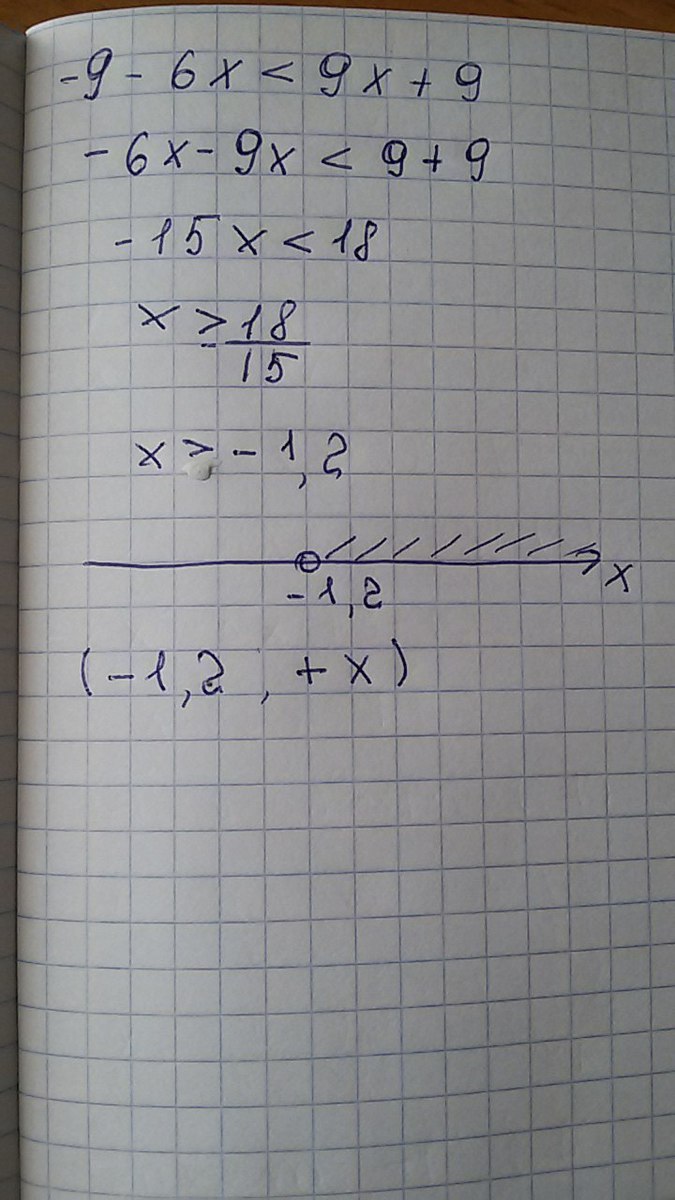 -9 - 6x < 9x + 9
-6x - 9x < 9 + 9
-15x < 18
x > -18/15
x > -1,2
-1,2 x
(-1,2 , +x)